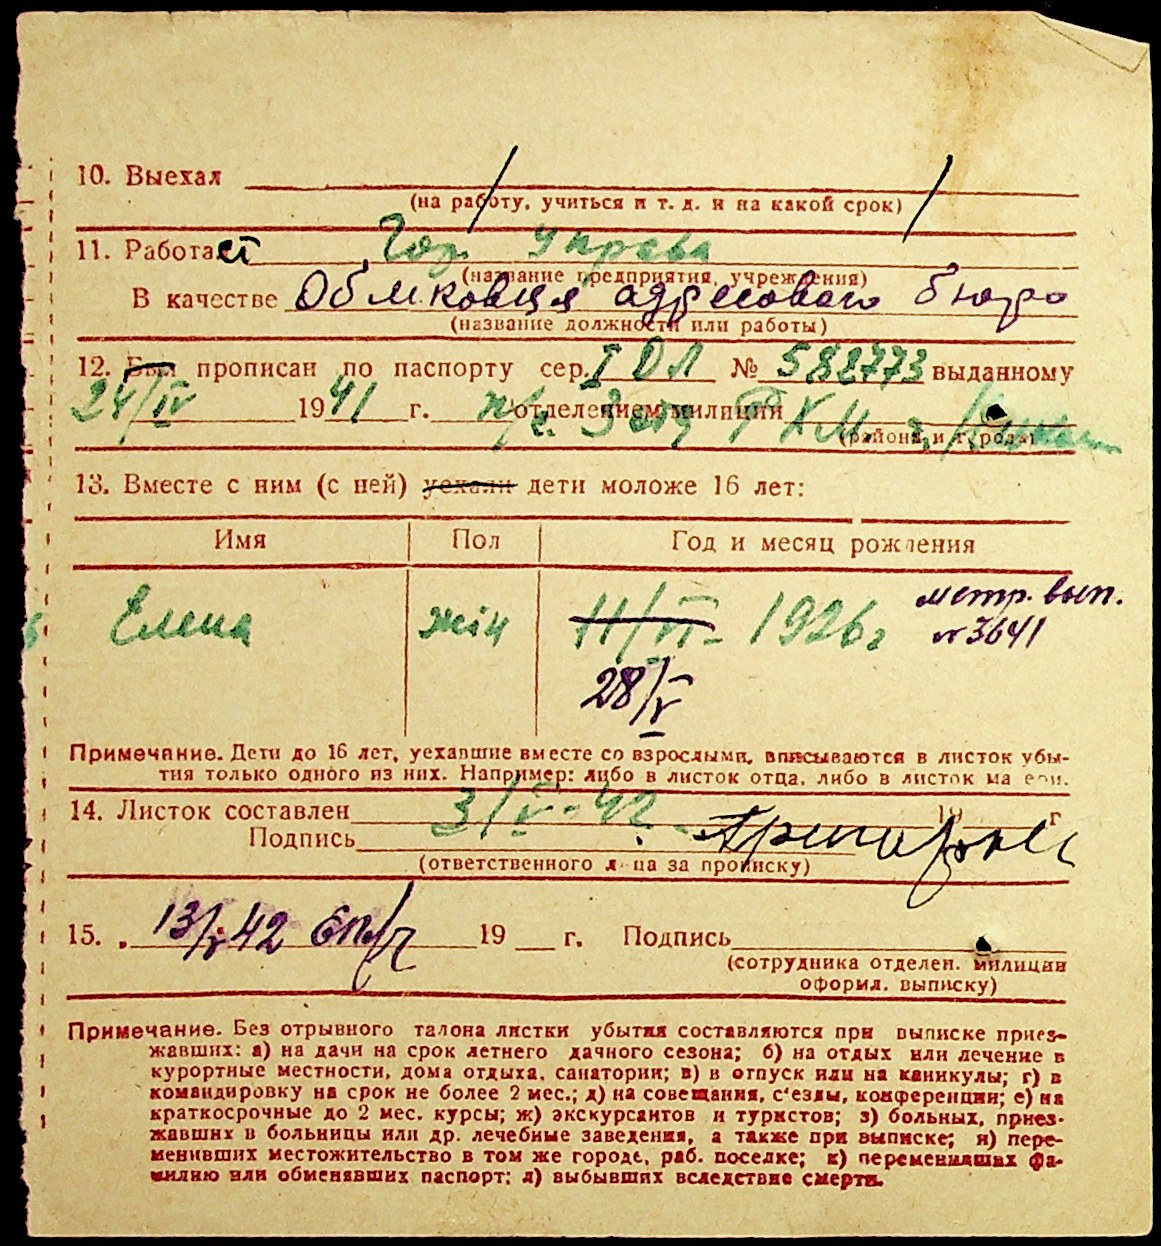 10. Выехал
(на работу, учиться и т. д. и на какой срок)
11. Работает Гор. Управа
(название предприятия, учреждения)
В качестве Обліковця адресового бюро
(название должности или работы)
12. Был прописан по паспорту сер. I ДЛ № 582773 выданному
24/IV 1941 г. отделением милиции РКМ г.
(района и города)
13. Вместе с ним (с ней) уехали дети моложе 16 лет:
Имя Пол Год и месяц рождения
Елена жін 11/VI- 1926 г метр. вып.
№ 3641
28/V
Примечание. Дети до 16 лет, уехавшие вместе со взрослыми, вписываются в листок убы-
тия только одного из них. Например: либо в листок отца, либо в листок матери.
14. Листок составлен 3/V-42 19 г
Подпись
(ответственного лица за прописку)
15. „ 13/V 42 19 г. Подпись
(сотрудника отделен. милиции
оформл. выписку)
Примечание. Без отрывного талона листки убытия составляются при выписке приез-
жавших: а) на дачи на срок летнего дачного сезона; б) на отдых или лечение в
курортные местности, дома отдыха, санатории; в) в отпуск или на каникулы; г) в
командировку на срок не более 2 мес.; д) на совещания, с'езды, конференции; е) на
краткосрочные до 2 мес. курсы; ж) экскурсантов и туристов; з) больных, приез-
жавших в больницы или др. лечебные заведения, а также при выписке; и) пере-
менивших местожительство в том же городе, раб. поселке; к) переменивших фа-
милию или обменявших паспорт; л) выбывших вследствие смерти.